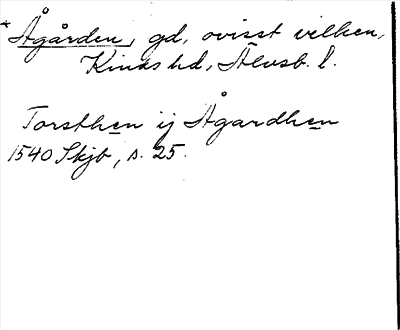 * Ågården, gd, ovisst vilken,
Kinds hd, Älvsb. l.
Torsthen ij Ågardhen
1540 Skjb, s. 25.